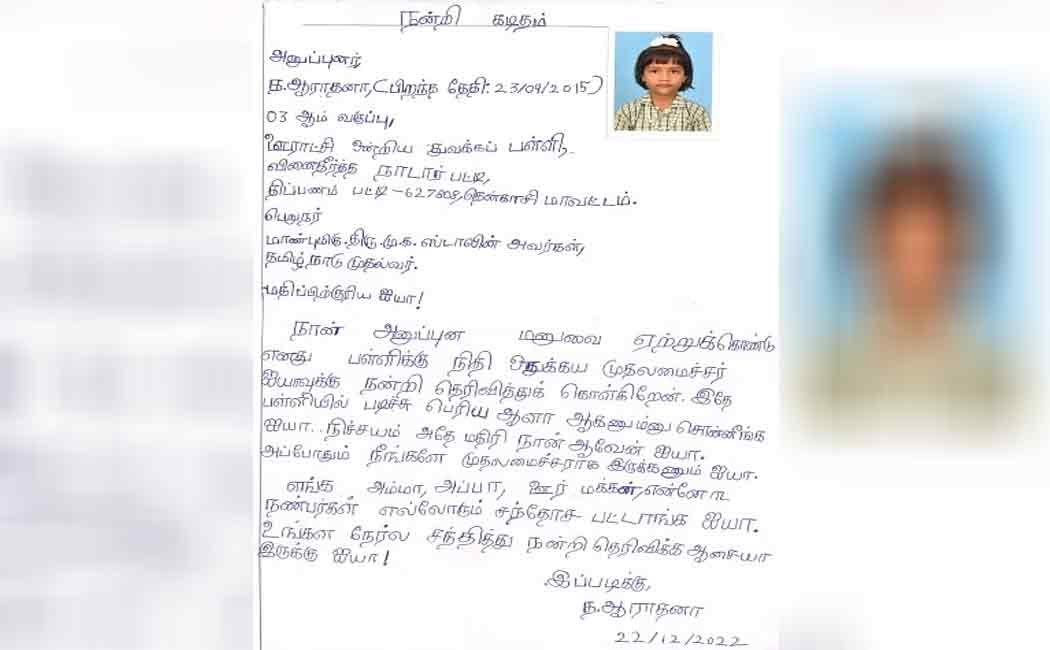 நன்றி கடிதம்
அனுப்புனர்
ந.ஆராதனா,(பிறந்த தேதி: 23/09/2015)
03 ஆம் வகுப்பு,
ஊராட்சி ஒன்றிய துவக்கப் பள்ளி,
வினைதீர்த்த நாடார் பட்டி,
திப்பணம் பட்டி - தென்காசி மாவட்டம்.
பெறுநர்
மாண்புமிகு.திரு.மு.க. ஸ்டாலின் அவர்கள்,
தமிழ் நாடு முதல்வர்.
மதிப்பிற்குரிய ஐயா!
நான் அனுப்புன மனுவை ஏற்றுக்கொண்டு
எனது பள்ளிக்கு நிதி முதலமைச்சர்
ஐயாவுக்கு நன்றி தெரிவித்துக் கொள்கிறேன். இதே
பள்ளியில் படிச்சு பெரிய ஆளா ஆகணும்னு சொன்னீங்க
ஐயா.. நிச்சயம் அதே மதிரி நான் ஆவேன் ஐயா.
அப்போதும் நீங்களே முதலமைச்சராக இருக்கணும் ஐயா.
எங்க அம்மா, அப்பா, ஊர் மக்கள், என்னோட
நண்பர்கள் எல்லோரும் சந்தோச பட்டாங்க ஐயா.
உங்கள நேர்ல சந்தித்து நன்றி தெரிவிக்க ஆசையா
இருக்கு ஐயா!
இப்படிக்கு,
ந.ஆராதனா
22/12/2022